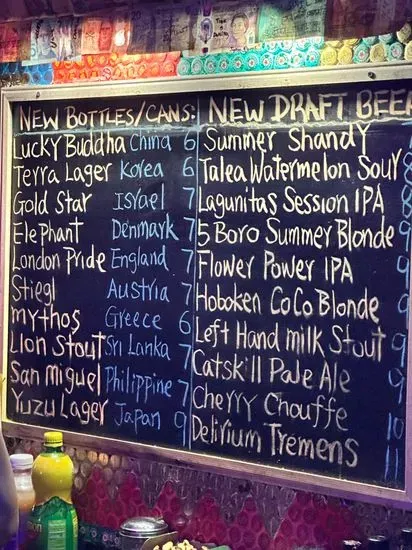 NEW BOTTLES/CANS:
Lucky Buddha China 6
Terra Lager Korea 6
Gold Star Israel 7
Elephant Denmark 7
London Pride England 7
Stiegl Austria 7
Mythos Greece 6
Lion Stout Sri Lanka 7
San Miguel Philippine 7
Yuzu Lager Japan 9
NEW DRAFT BEE
Summer Shandy
Talea Watermelon Sour 8
Lagunitas Session IPA 8
5 Boro Summer Blonde 9
Flower Power IPA 9
Hoboken CoCo Blonde 9
Left Hand milk Stout 9
Catskill Pale Ale 9
Cherry Chouffe 10
Delivium Tremens 11